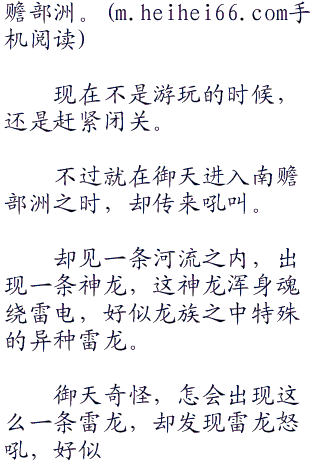 赡部洲。(m.heihei66.com手
机阅读)
现在不是游玩的时候，
还是赶紧闭关。
不过就在御天进入南赡
部洲之时，却传来吼叫。
却见一条河流之内，出
现一条神龙，这神龙浑身魂
绕雷电，好似龙族之中特殊
的异种雷龙。
御天奇怪，怎会出现这
么一条雷龙，却发现雷龙怒
吼，好似